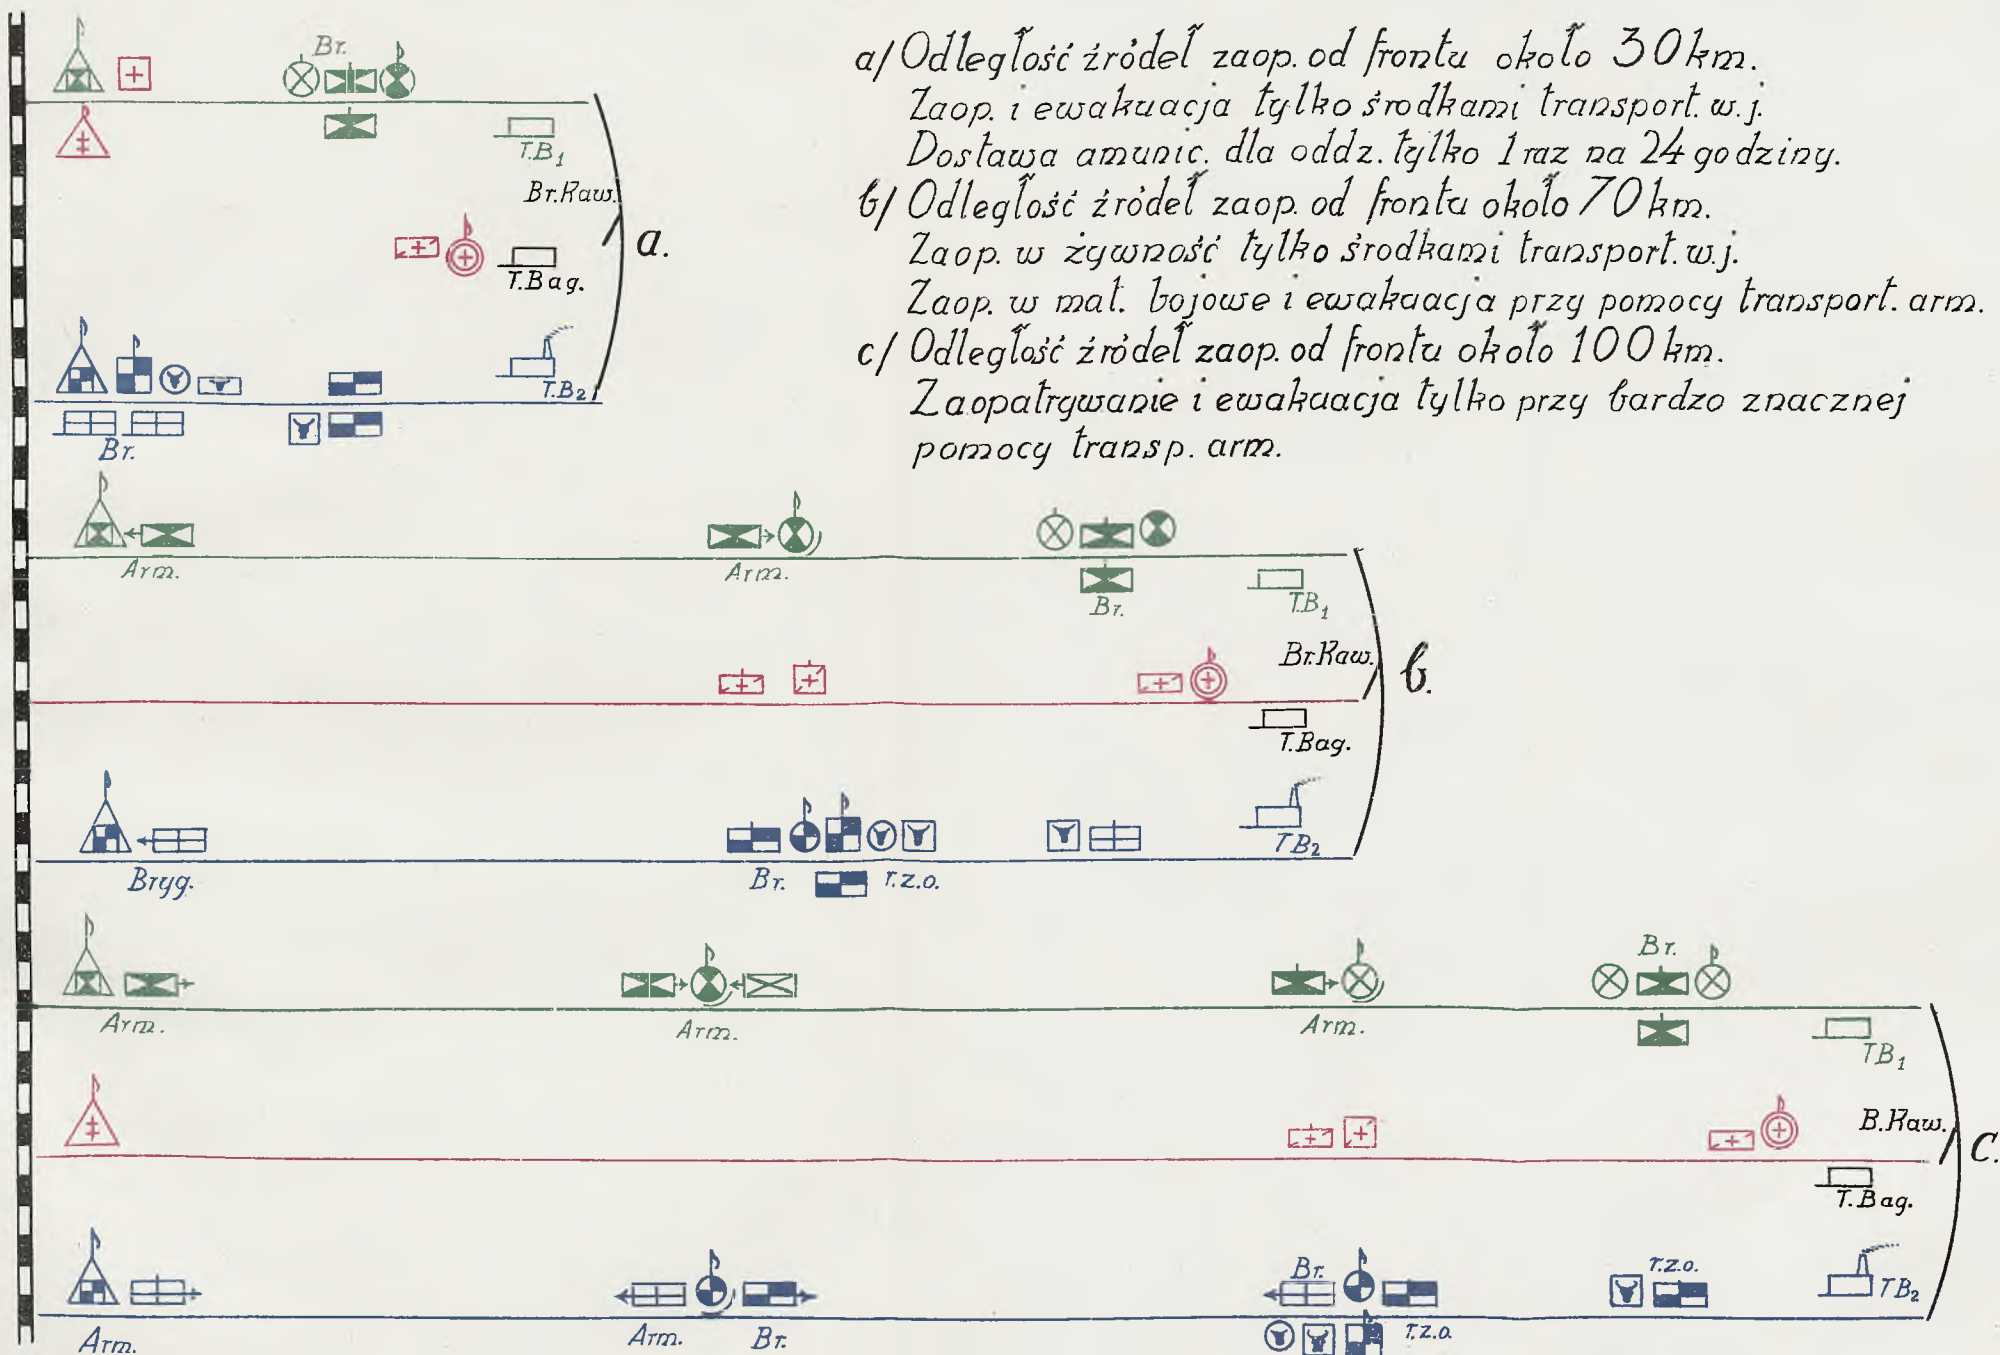 a/ Odległość źródeł zaop. od frontu około 30 km.
Zaop. i ewakuacja tylko środkami transport. w.j.
Dostawa amunic. dla oddz. tylko 1 raz na 24 godziny.
b/ Odległość źródeł zaop. od frontu około 70 km.
Zaop. w żywność tylko środkami transport. w.j.
Zaop. w mat. bojowe i ewakuacja przy pomocy transport. arm.
c/ Odległość źródeł zaop. od frontu około 100 km.
Zaopatrywanie i ewakuacja tylko przy bardzo znacznej
pomocy transp. arm.
Br.
T.B1
Br. Kaw.
a.
T.Bag.
T.B2
Br.
Arm.
Arm.
Br.
T.B1
Br. Kaw.
b.
T.Bag.
T.B2
Bryg.
Br.
r.z.o.
Br.
Arm.
Arm.
Arm.
T.B1
B. Kaw.
c.
T.Bag.
Br.
r.z.o.
T.B2
Arm.
Arm.
Br.
r.z.o.